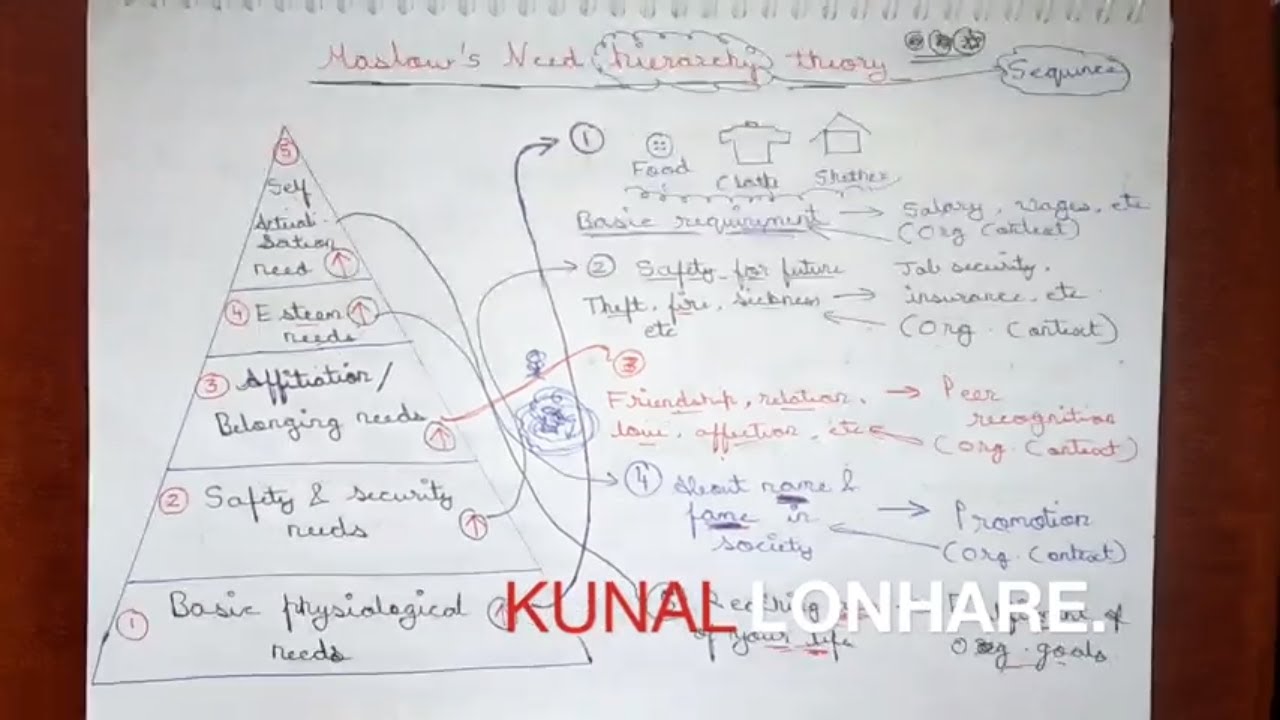 Maslow's Need hierarchy theory
Sequnce
5
Self
Actuali-
sation
need
4 Esteem
needs
3 Affiliation/
Belonging needs
2 Safety & security
needs
1 Basic physiological
needs
1
Food
Cloths
Shelther
Basic requirement → Salary, wages, etc
(Org Context)
2 Safety for future
Job security,
Theft, fire, sickness → insurance, etc
etc
(Org. Context)
3
Friendship, relation, → Peer
recognition
love, affection, etc
(Org. Context)
4 About name &
fame in → Promotion
society
(Org. Context)
5
of your life
of
Org. goals
KUNAL LONHARE.